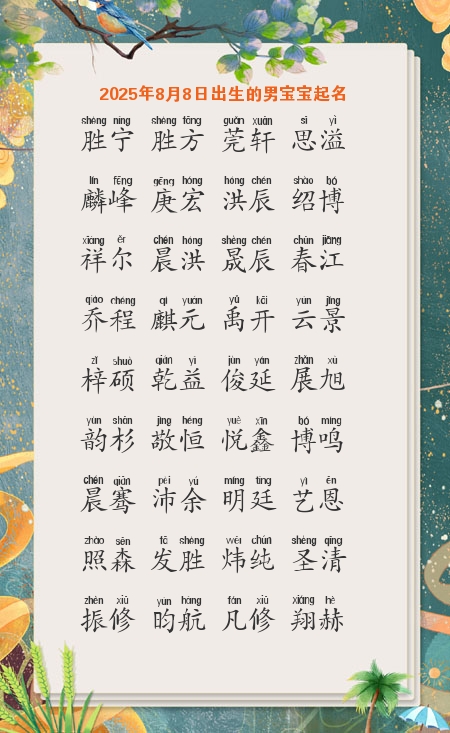 2025年8月8日出生的男宝宝起名
shèng níng shèng fāng guǎn xuān sī yì
胜宁 胜方 莞轩 思溢
lín fēng gēng hóng hóng chén shào bó
麟峰 庚宏 洪辰 绍博
xiáng ěr chén hóng shèng chén chūn jiāng
祥尔 晨洪 晟辰 春江
qiáo chéng qí yuán yǔ kāi yún jǐng
乔程 麒元 禹开 云景
zǐ shuò qián yì jùn yán zhǎn xù
梓硕 乾益 俊延 展旭
yùn shān jìng héng yuè xīn bó míng
韵杉 敬恒 悦鑫 博鸣
chén qiān pèi yú míng tíng yì ēn
晨骞 沛余 明廷 艺恩
zhào sēn fā shèng wěi chún shèng qīng
照森 发胜 炜纯 圣清
zhèn xiū yún háng fán xiū xiáng hè
振修 昀航 凡修 翔赫